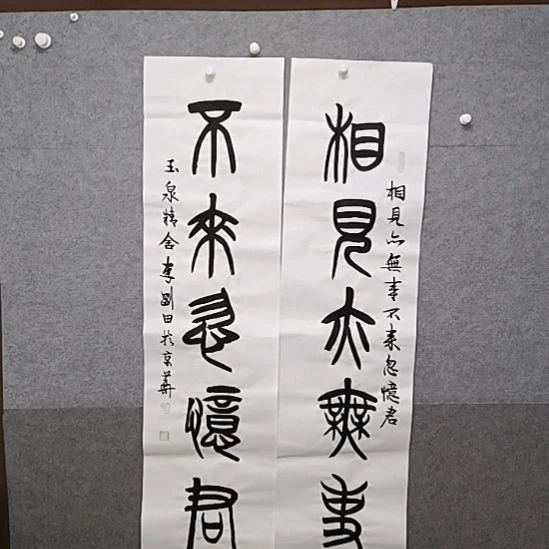 相見亦無事
相見亦無事不来忽憶君
不来忽憶君
玉泉精舍李剛田於京華